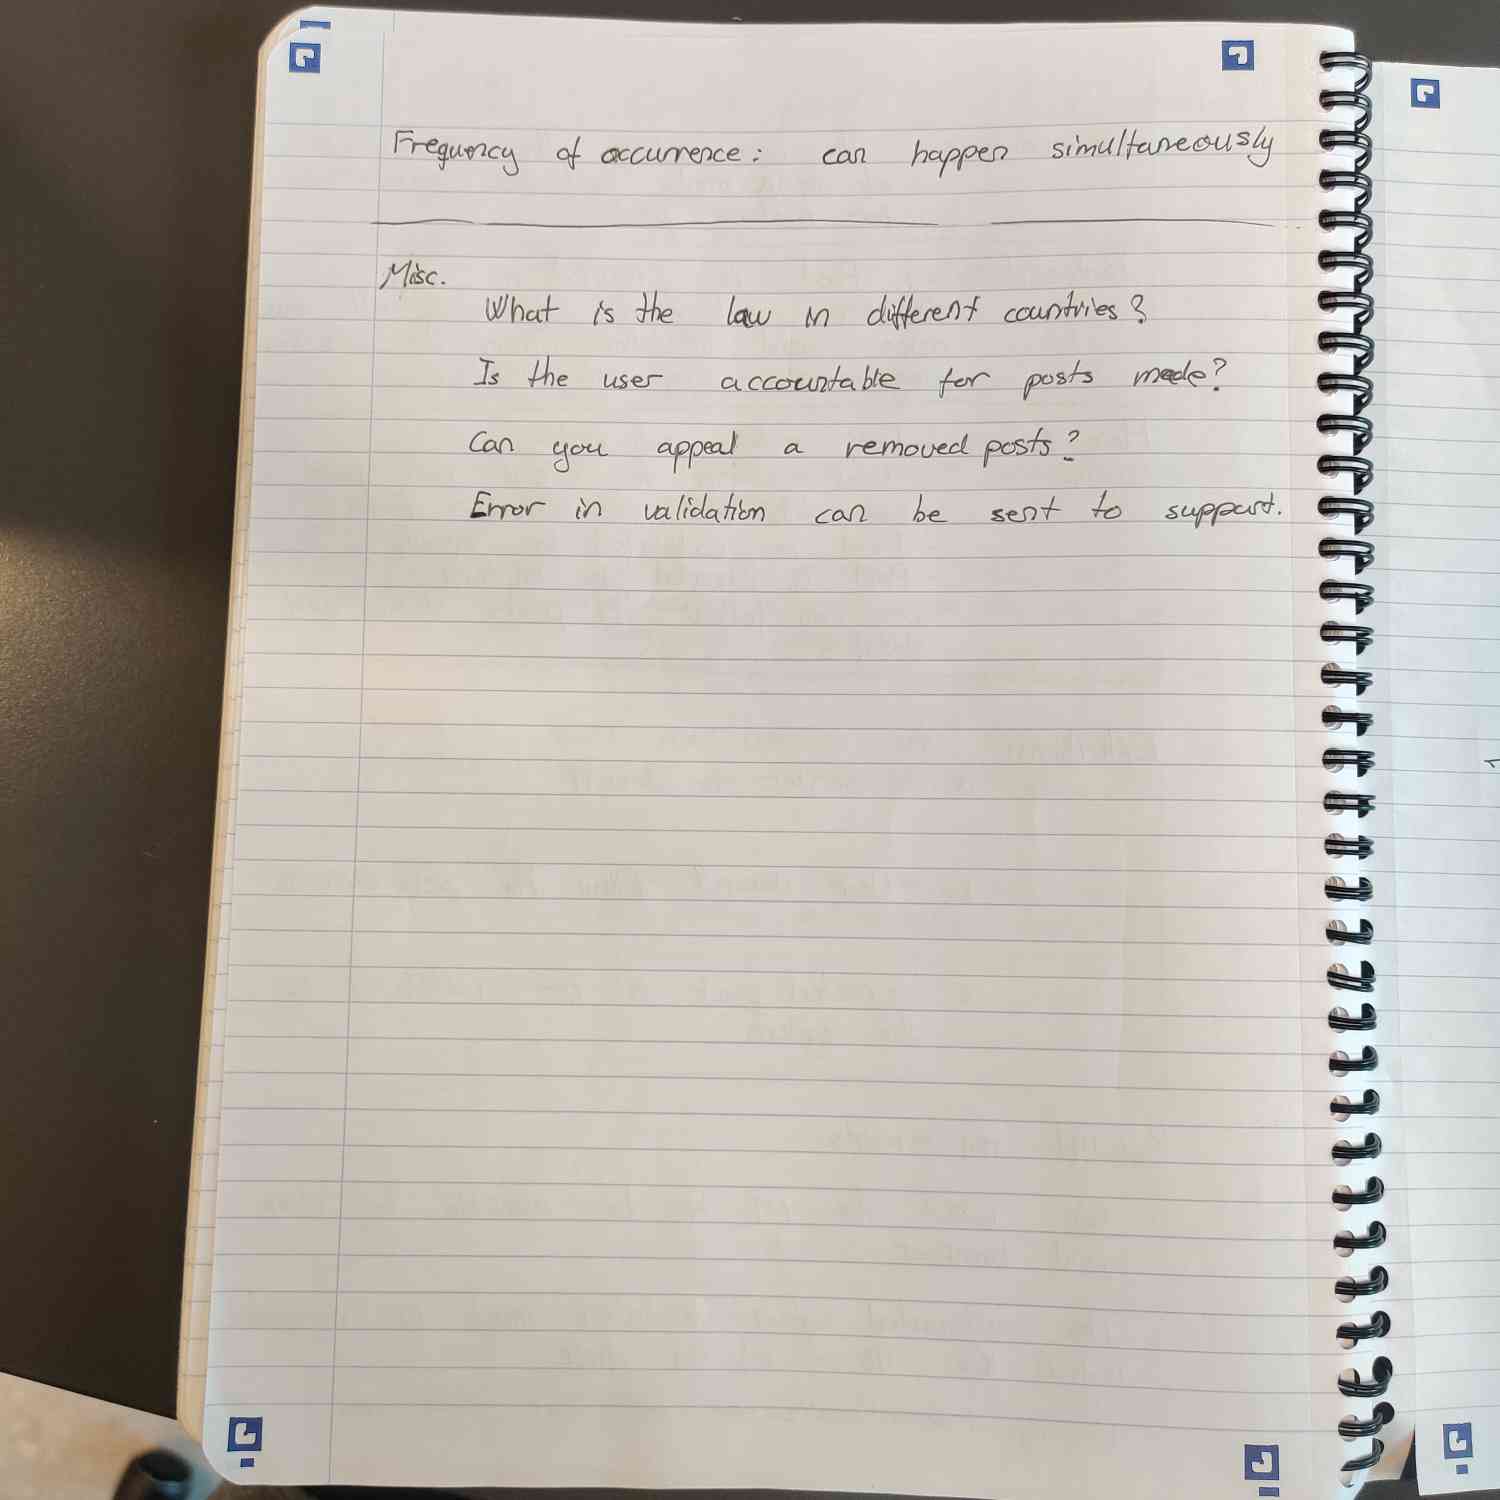 Frequency of occurrence: can happen simultaneously
Misc.
What is the law in different countries?
Is the user accountable for posts made?
Can you appeal a removed posts?
Error in validation can be sent to support.